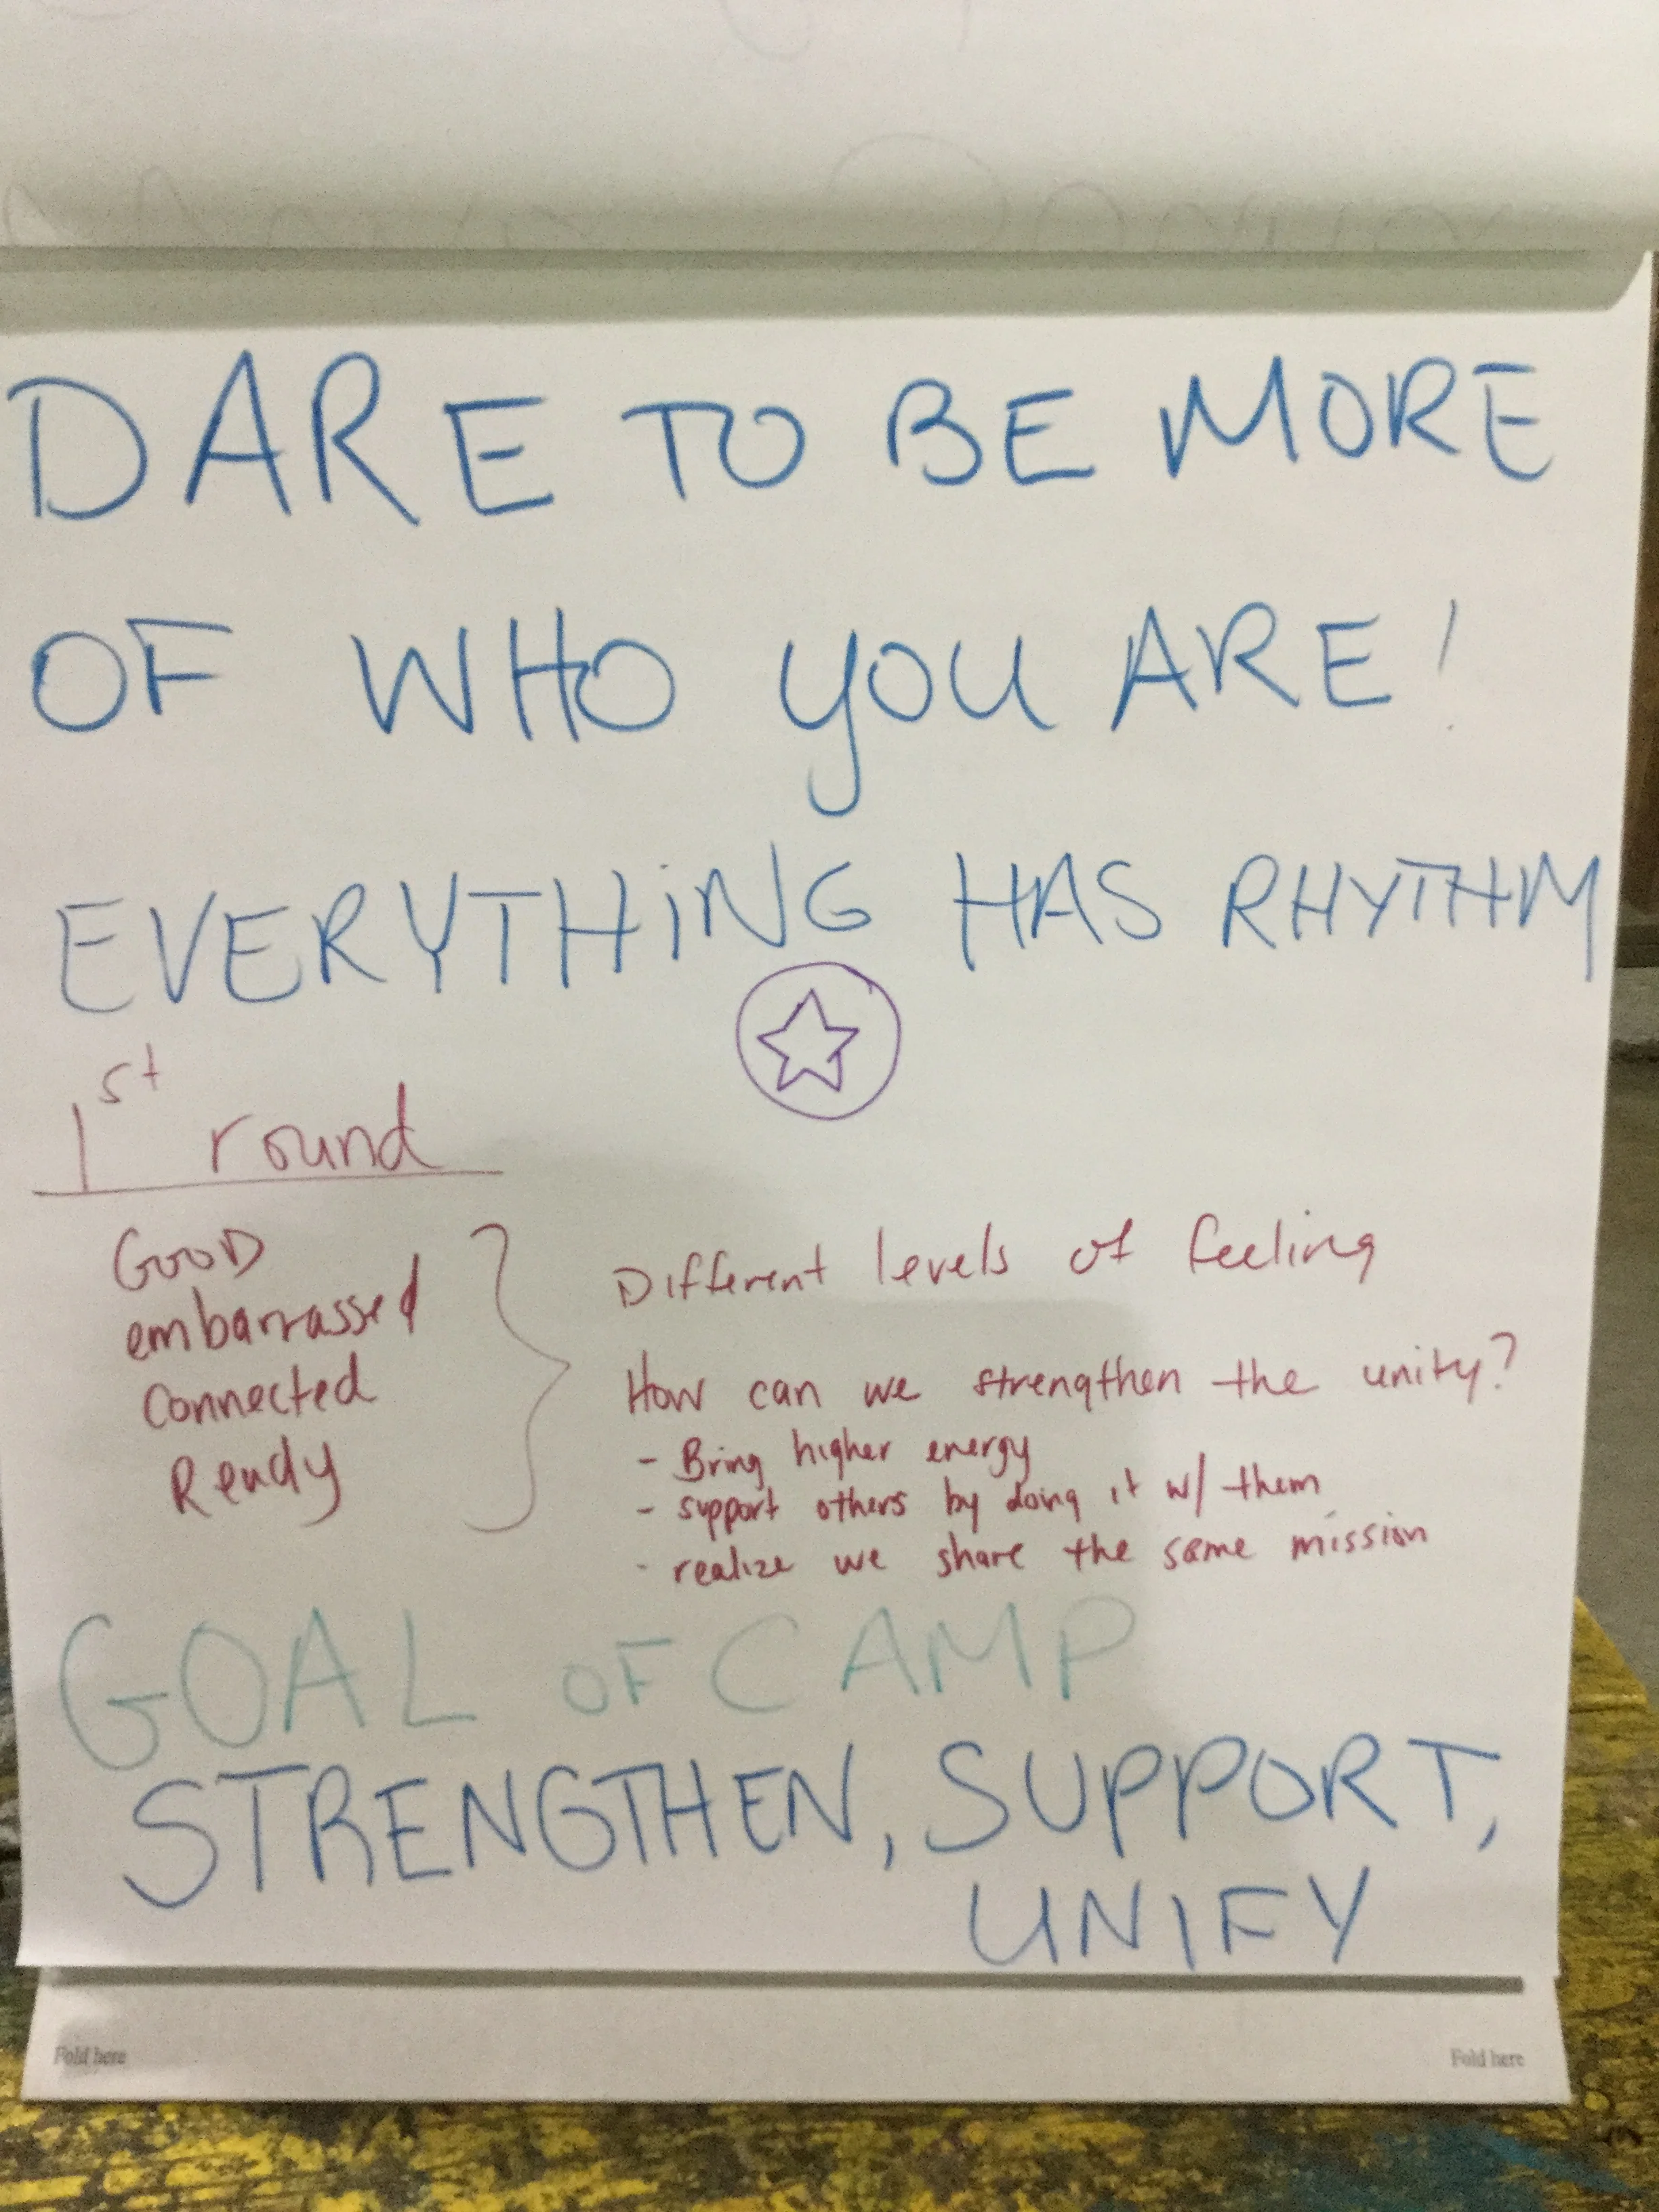 DARE TO BE MORE
OF WHO YOU ARE!
EVERYTHING HAS RHYTHM
1st round
GOOD
embarrassed
connected
Ready
Different levels of feeling
How can we strengthen the unity?
- Bring higher energy
- support others by doing it w/ them
- realize we share the same mission
GOAL OF CAMP
STRENGTHEN, SUPPORT,
UNIFY
Fold here
Fold here